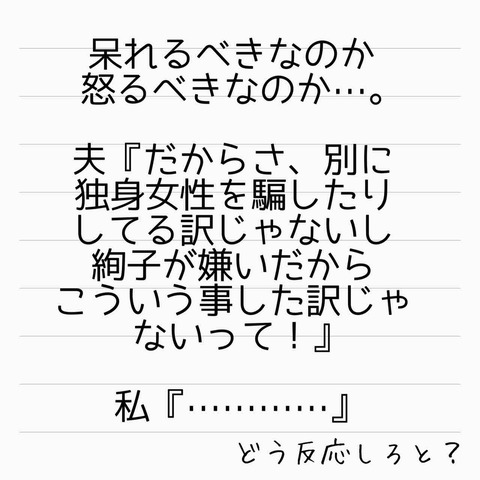 呆れるべきなのか
怒るべきなのか…。
夫『だからさ、別に
独身女性を騙したり
してる訳じゃないし
絢子が嫌いだから
こういう事した訳じゃ
ないって！』
私『…………』
どう反応しろと？